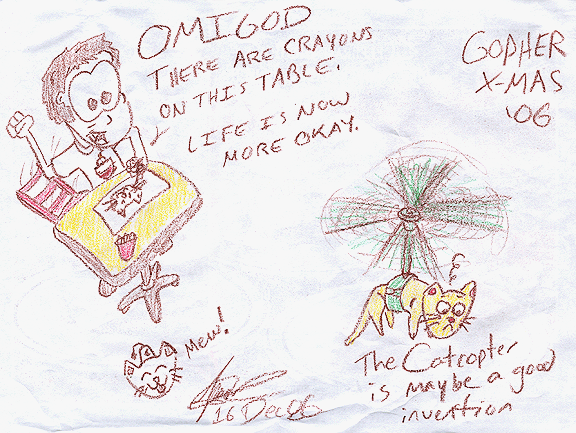 OMIGOD
THERE ARE CRAYONS
ON THIS TABLE.
LIFE IS NOW
MORE OKAY.
GOPHER
X-MAS
'06
Mew!
16 Dec 06
The Catcopter
is maybe a good
invention